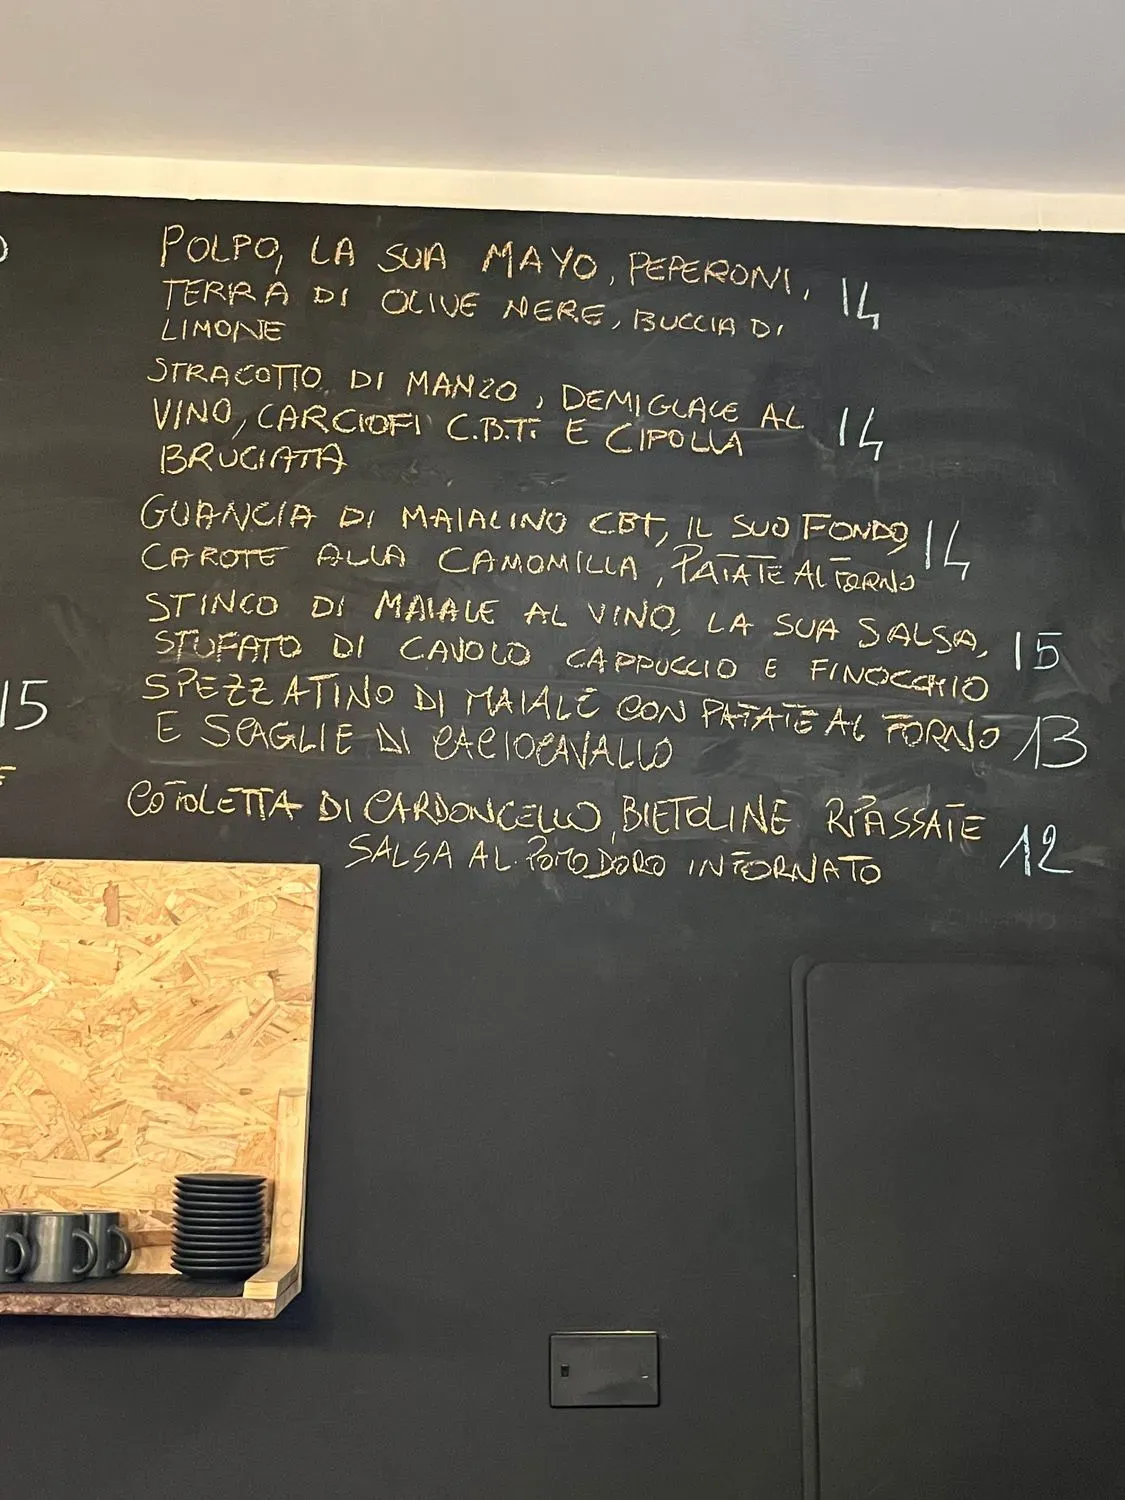 POLPO, LA SUA MAYO, PEPERONI,
TERRA DI OLIVE NERE, BUCCIA DI 14
LIMONE
STRACOTTO DI MANZO, DEMIGLACE AL
VINO, CARCIOFI C.B.T. E CIPOLLA 14
BRUCIATA
GUANCIA DI MAIALINO CBT, IL SUO FONDO, 14
CAROTE ALLA CAMOMILLA, PATATE AL FORNO
STINCO DI MAIALE AL VINO, LA SUA SALSA, 15
STUFATO DI CAVOLO CAPPUCCIO E FINOCCHIO
15
SPEZZATINO DI MAIALE CON PATATE AL FORNO 13
E SCAGLIE DI CACIOCAVALLO
COTOLETTA DI CARDONCELLO, BIETOLINE RIPASSATE 12
SALSA AL POMODORO INFORNATO